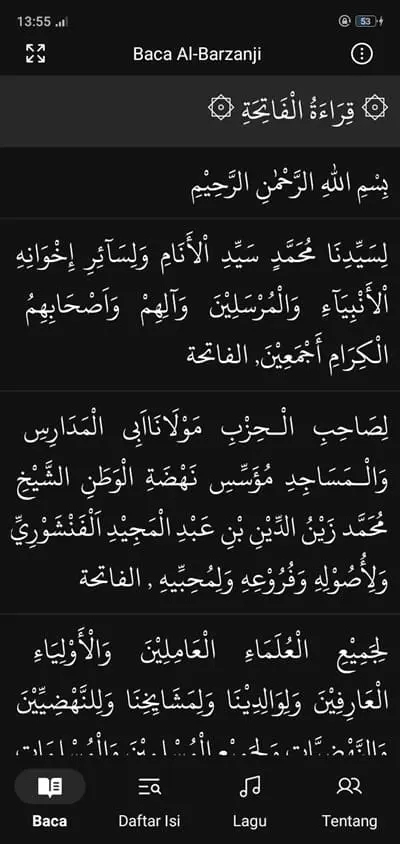 13:55
53
Baca Al-Barzanji
۞ قِرَاءَةُ الْفَاتِحَةِ ۞
بِسْمِ اللهِ الرَّحْمٰنِ الرَّحِيْمِ
لِسَيِّدِنَا مُحَمَّدٍ سَيِّدِ الْأَنَامِ وَلِسَآئِرِ إِخْوَانِهِ
الْأَنْبِيَآءِ وَالْمُرْسَلِيْنَ وَآلِهِمْ وَاَصْحَابِهِمُ
الْكِرَامِ أَجْمَعِيْنَ, الفاتحة
لِصَاحِبِ الْـحِزْبِ مَوْلَانَااَبِى الْمَدَارِسِ
وَالْـمَسَاجِدِ مُؤَسِّسِ نَهْضَةِ الْوَطَنِ الشَّيْخِ
مُحَمَّد زَيْنُ الدِّيْنِ بْنِ عَبْدِ الْمَجِيْدِ اَلْفَنْشَوْرِيِّ
وَلِأُصُوْلِهِ وَفُرُوْعِهِ وَلِمُحِبِّيهِ , الفاتحة
لِجَمِيْعِ الْعُلَمَاءِ الْعَامِلِيْنَ وَالْأَوْلِيَاءِ
الْعَارِفِيْنَ وَلِوَالِدِيْنَا وَلِمَشَايِخِنَا وَلِلنَّهْضِيِّيْنَ
وَالنَّهْضِيَّاتِ وَلِجَمِيْعِ الْمُسْلِمِيْنَ وَالْمُسْلِمَاتِ
Baca
Daftar Isi
Lagu
Tentang